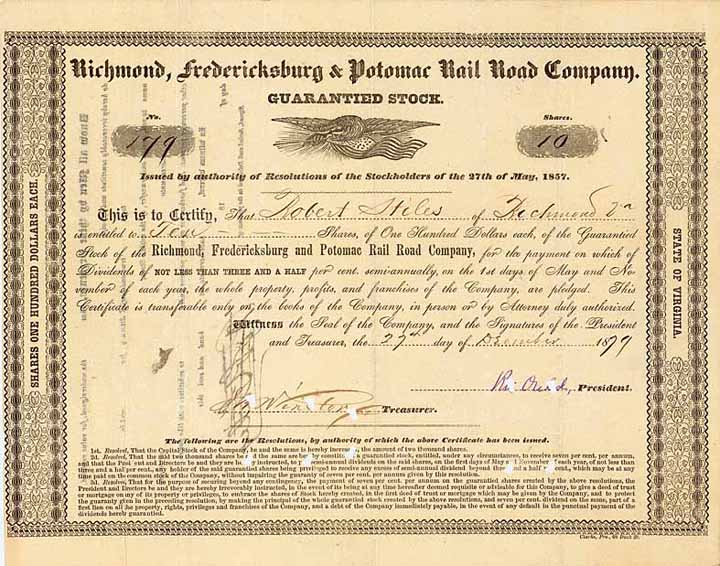 Richmond, Fredericksburg & Potomac Rail Road Company.
GUARANTIED STOCK.
No. Shares.
179 10
Issued by authority of Resolutions of the Stockholders of the 27th of May, 1857.
This is to Certify, That Robert Stiles of Richmond Va
is entitled to Ten Shares, of One Hundred Dollars each, of the Guarantied
Stock of the Richmond, Fredericksburg and Potomac Rail Road Company, for the payment on which of
Dividends of NOT LESS THAN THREE AND A HALF per cent. semi-annually, on the 1st days of May and No-
vember of each year, the whole property, profits, and franchises of the Company, are pledged. This
Certificate is transferable only on the books of the Company, in person or by Attorney duly authorized.
Witness the Seal of the Company, and the Signatures of the President
and Treasurer, the 27th day of December 1879
President.
Treasurer.
The following are the Resolutions, by authority of which the above Certificate has been issued.
1st. Resolved, That the Capital Stock of the Company, be and the same is hereby increased, the amount of two thousand shares.
2d. Resolved, That the said two thousand shares be and the same are constituted a guarantied stock, entitled, under any circumstances, to receive seven per cent. per annum,
and that the President and Directors be and they are hereby instructed, to pay semi-annual dividends on the same, on the first days of May and November of each year, of not less than
three and a half per cent., any holder of the said guarantied shares being privileged to receive any excess of semi-annual dividend beyond three and a half per cent., which may be at any
time paid on the common stock of the Company, without impairing the guaranty of seven per cent. per annum, given by this resolution.
3d. Resolved, That for the purpose of securing beyond any contingency, the payment of seven per cent. per annum on the guarantied shares created by the above resolutions, the
President and Directors be and they are hereby irrevocably instructed, in the event of its being at any time hereafter deemed requisite or advisable for this Company, to give a deed of trust
or mortgage on any of its property or privileges, to embrace the shares of Stock hereby created, in the first deed of trust or mortgage which may be given by the Company, and to protect
the guaranty given in the preceding resolution, by making the principal of the whole guarantied stock created by the above resolutions, and seven per cent. dividend on the same, part of a
first lien on all the property, rights, privileges and franchises of the Company, and a debt of the Company immediately payable, in the event of any default in the punctual payment of the
dividends hereby guarantied.
SHARES ONE HUNDRED DOLLARS EACH.
STATE OF VIRGINIA.